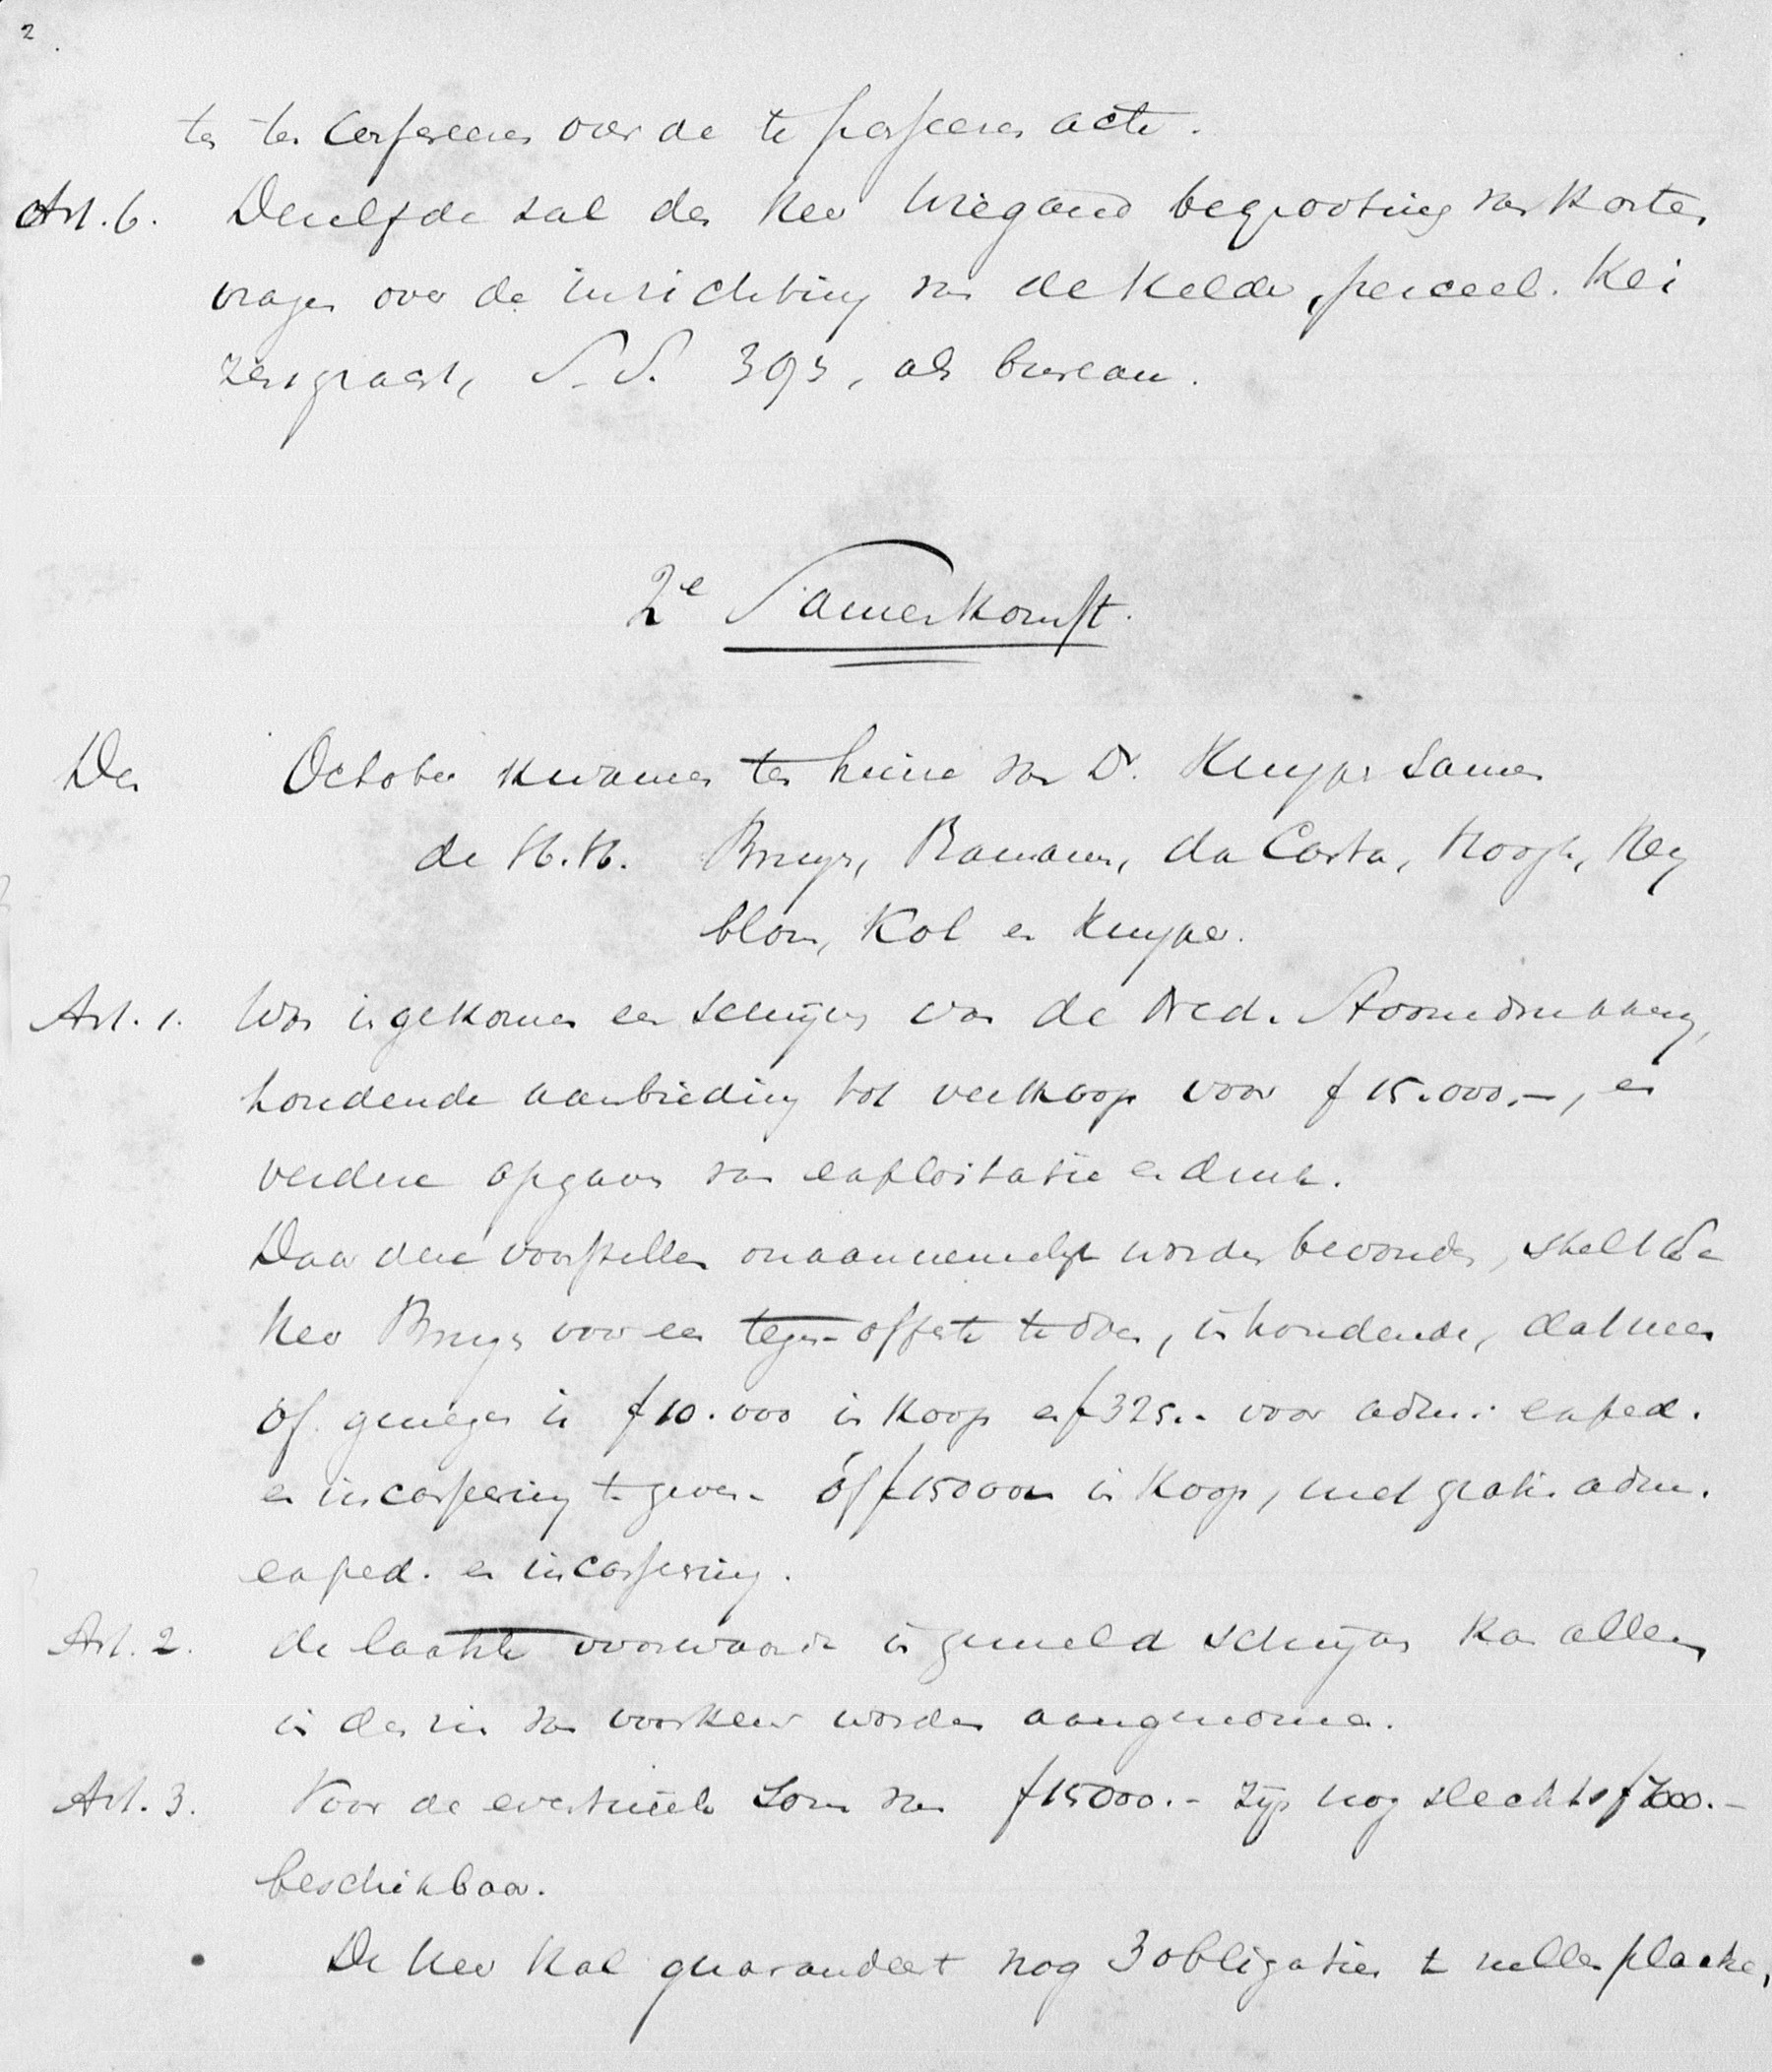 2
ten ten Confereeren over de te passeeren acte.
Art. 6. Dezelfde zal den Heer Wiegand begrooting van Kosten
vragen over de inrichting van de Kelder, perceel. Kei
zersgracht, S.S. 393, als bureau.
2e Samenkomst.
Den October kwamen ten huize van Dr. Kuyper samen
de H.H. Bruyn, Ramann, da Costa, Hoogh, Hey
blom, Kol en Kuyper.
Art. 1. Was ingekomen een schrijven van de Ned. Stoomdrukkerij,
houdende aanbieding tot verkoop voor f 15.000.-, en
verdere opgaven van exploitatie en druk.
Daar deze voorstellen onaannemelijk worden bevonden, stelt de
Heer Bruyn voor een tegen-offerte te doen, inhoudende, dat men
of genegen is f 10.000 in koop en f 325.- voor adm. exped.
en incasseering te geven - óf f 15000 in Koop, met gratis adm.
exped. en incasseering.
Art. 2. de laatste voorwaarde in gemeld schrijven kan alleen
in den zin van voorkeur worden aangenomen.
Art. 3. Voor de eventueele som van f 15000.- zijn nog slechts f 7000.-
beschikbaar.
De Heer Kol guarandeert nog 3 obligatien te zullen plaatsen,